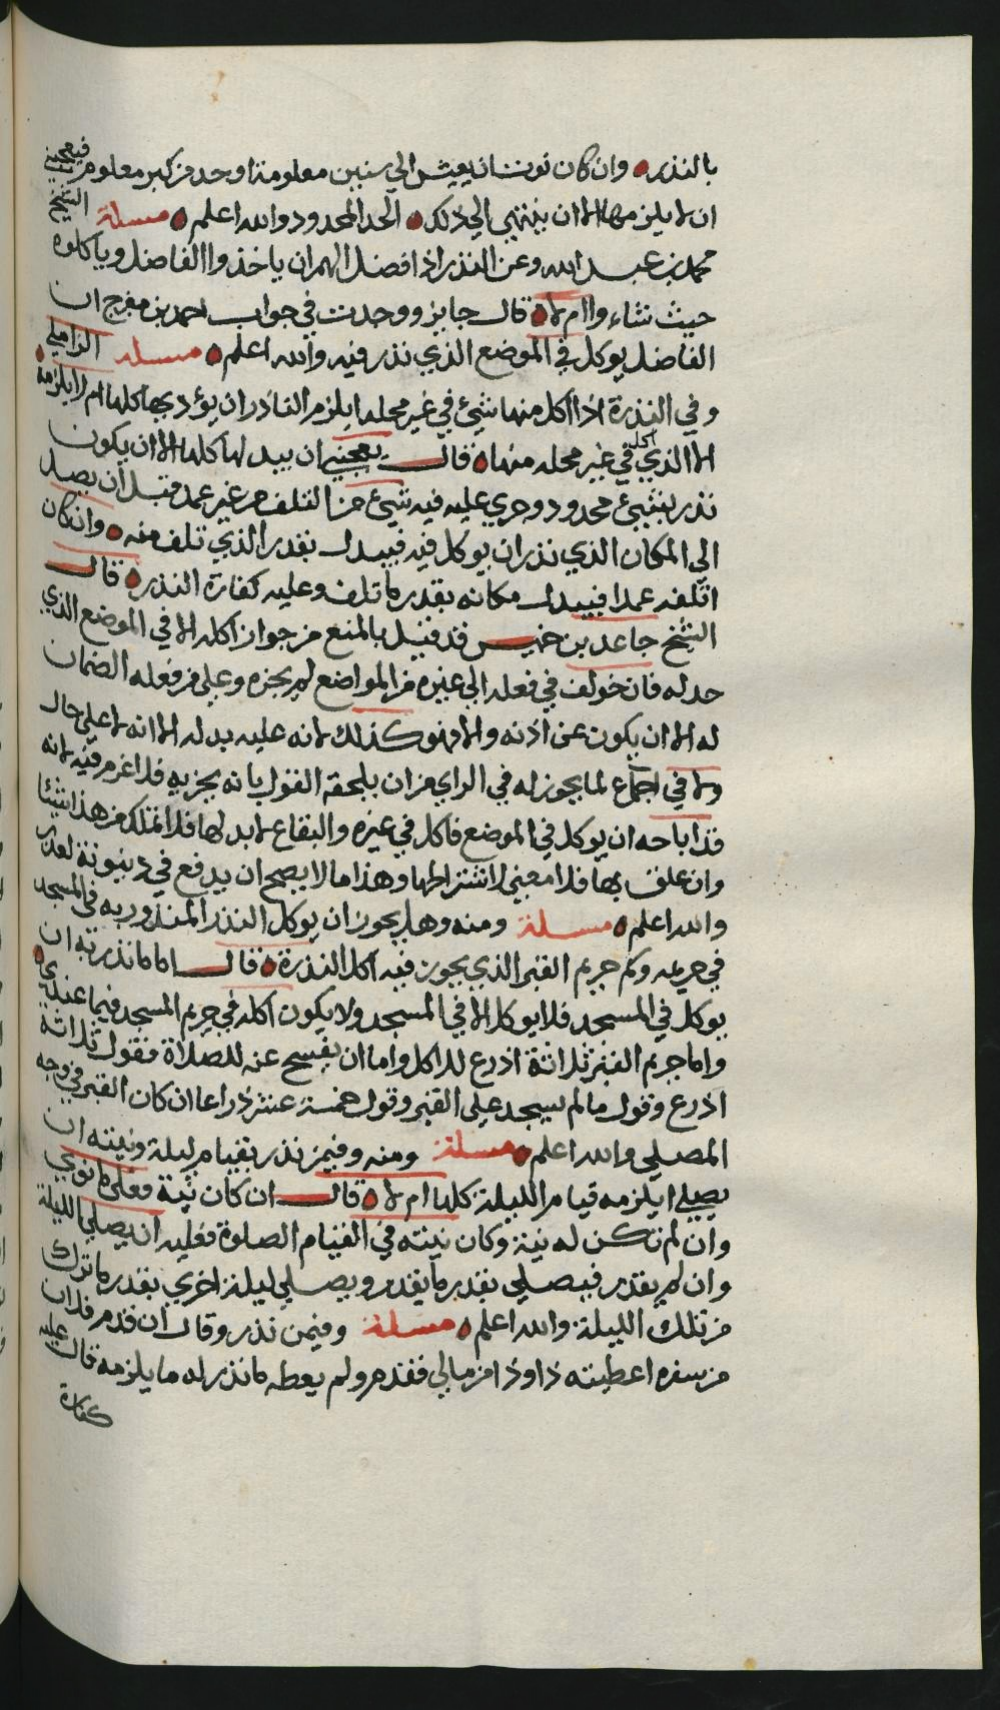 بالنذر ٥ وان كان نوت ان يعيش الى سنين معلومة او حد من كبر معلوم فيعجبني
ان لا يلزمها الا ان ينتهي الى ذلك ٥ الحد المحدود والله اعلم ٥ مسئلة الشيخ
محمد بن عبد الله وعن النذر اذا فضل الهم ان ياخذوا الفاضل وياكلوه
حيث شاءوا ام لا ٥ قال جايز ووجدت في جواب احمد بن مفرج ان
الفاضل يوكل في الموضع الذي نذر فيه والله اعلم ٥ مسئله الزاملي
وفي النذرة اذا اكل منها شيئ في غير محله ايلزم الناذر ان يؤدبها كلها ام لا يلزمه
الا الذي اكله في غير محله منها ٥ قال يعجبني ان يبدلها كلها الا ان يكون
نذر بشيئ محدود وجرى عليه فيه شيئ من التلف من غير عمد قبل ان يصل
الي المكان الذي نذر ان يوكل فيه فيبدل بقدر الذي تلف منه ٥ وان كان
اتلفه عمدا فيبدل مكانه بقدر ما تلف وعليه كفارة النذر ٥ قال
الشيخ جاعد بن خميس قد قيل بالمنع من جواز اكله الا في الموضع الذي
حد له فان خولف في فعله الي غيره من المواضع لم يجزه وعلى من فعله الضمان
له الا ان يكون عن اذنه والا فهو كذلك لانه عليه بدله الا انه لا على حال
ولا في اجماع لما يجوز له في الراي من ان يلحقه القول بانه يجزيه فلا غرم فيه لانه
قد اباحه ان يوكل في الموضع فاكل في غيره والبقاع لا بد لها فلا تمتلك من هذا شيئا
وان علف بها فلا معنى لاشتراطها وهذا ما لا يصح ان يدفع في دينونة لعدل
والله اعلم ٥ مسئلة ومنه وهل يجوز ان يوكل النذر المنذور به في المسجد
في حريمه وكم حريم القبر الذي يجوز فيه اكل النذرة ٥ قال اما ما نذرت به ان
يوكل في المسجد فلا يوكل الا في المسجد ولا يكون اكله في حريم المسجد فيما عندي ٥
واما حريم القبر ثلاثة اذرع للاكل واما ان يفسح عنه للصلاة فقول ثلاثة
اذرع وقول ما لم يسجد على القبر وقول خمسة عشر ذراعا ان كان القبر في وجه
المصلي والله اعلم ٥ مسئلة ومنه وفيمن نذر بقيام ليلة ونيته ان
يصلي ايلزمه قيام الليلة كلها ام لا ٥ قال ان كان نية فعلى ما نوى
وان لم تكن له نية وكان نيته في القيام الصلوة فعليه ان يصلي الليلة
وان لم يقدر فيصلي بقدر ما يقدر ويصلي ليلة اخرى بقدر ما ترك
من تلك الليلة والله اعلم ٥ مسئلة وفيمن نذر وقال ان قدم فلان
من سفره اعطيته ذا وذا من مالي فقدم ولم يعطه ما نذر له ما يلزمه قال عليه
كفارة